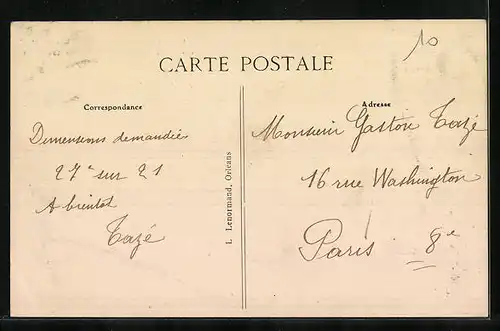 10
CARTE POSTALE
Correspondance
Dimensions demandées
27c sur 21
A bientot
Tazé
L. Lenormand, Orléans
Adresse
Monsieur Gaston Tazé
16 rue Washington
Paris 8e